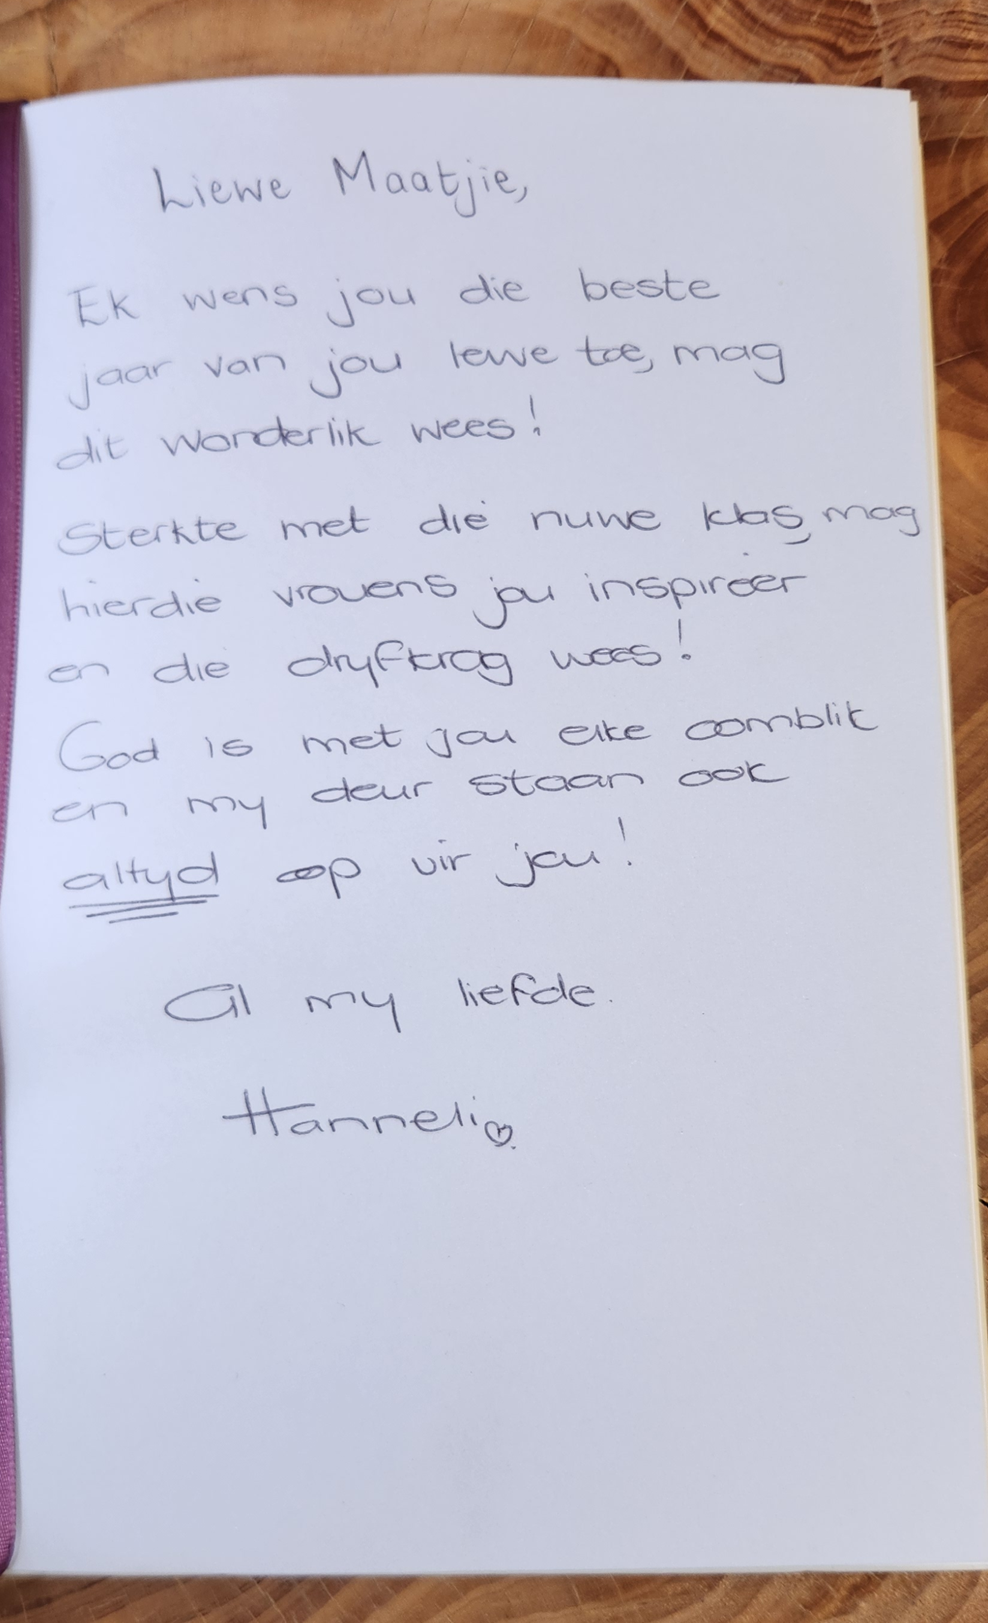 Liewe Maatjie,
Ek wens jou die beste
jaar van jou lewe toe, mag
dit wonderlik wees!
Sterkte met die nuwe klas, mag
hierdie vrouens jou inspireer
en die dryfkrag wees!
God is met jou elke oomblik
en my deur staan ook
altyd oop vir jou!
Al my liefde.
Hanneli